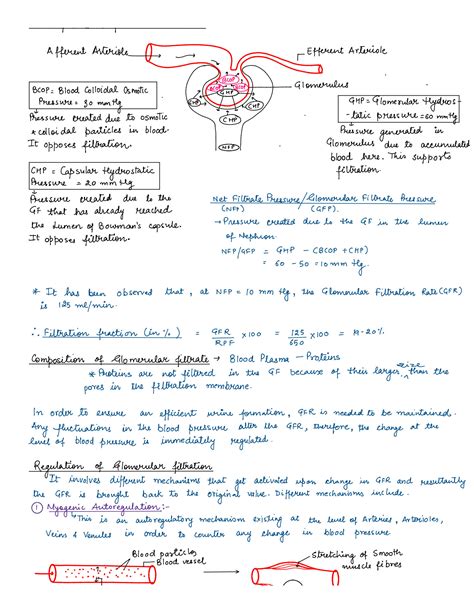 Afferent Arteriole
Efferent Arteriole
BCOP
BCOP
GHP
Glomerulus
CHP
CHP
CHP
NFP
BCOP = Blood Colloidal Osmotic
Pressure = 30 mmHg
Pressure created due to osmotic
& colloidal particles in blood.
It opposes filtration.
GHP = Glomerular Hydros-
-tatic pressure = 60 mmHg
Pressure generated in
Glomerulus due to accumulated
blood here. This supports
filtration.
CHP = Capsular Hydrostatic
Pressure = 20 mm Hg
Pressure created due to the
GF that has already reached
the lumen of Bowman's capsule.
It opposes filtration.
Net Filtrate Pressure / Glomerular Filtrate Pressure
(NFP) (GFP).
→ Pressure created due to the GF in the lumen
of Nephron
NFP/GFP = GHP - (BCOP + CHP)
= 60 - 50 = 10 mm Hg.
* It has been observed that, at NFP = 10 mm Hg, the Glomerular Filtration Rate (GFR)
is 125 ml/min.
∴ Filtration fraction (in %) = GFR/RPF ×100 = 125/650 ×100 = 19-20%
Composition of Glomerular filtrate → Blood Plasma - Proteins
* Proteins are not filtered in the GF because of their larger size than the
pores in the filtration membrane.
In order to ensure an efficient urine formation, GFR is needed to be maintained.
Any fluctuations in the blood pressure alter the GFR, therfore, the change at the
level of blood pressure is immediately regulated.
Regulation of Glomerular filtration
It involves different mechanisms that get activated upon change in GFR and resultantly
the GFR is brought back to the original value. Different mechanisms include.
① Myogenic Autoregulation:-
This is an autoregulatory mechanism existing at the level of Arteries, Arterioles,
Veins & Venules in order to counter any change in blood pressure
Blood particles
Blood vessel
Stretching of Smooth
muscle fibres